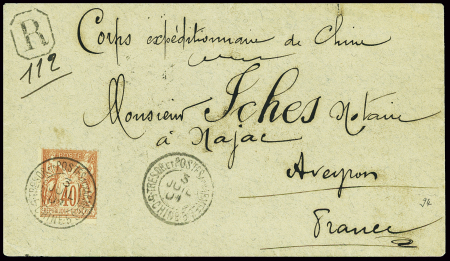 R
112
Corps expéditionnaire de Chine
Monsieur Iches Notaire
à Najac
Aveyron
France
40
TRESOR ET POSTES
5
JUIL
01
CHINE